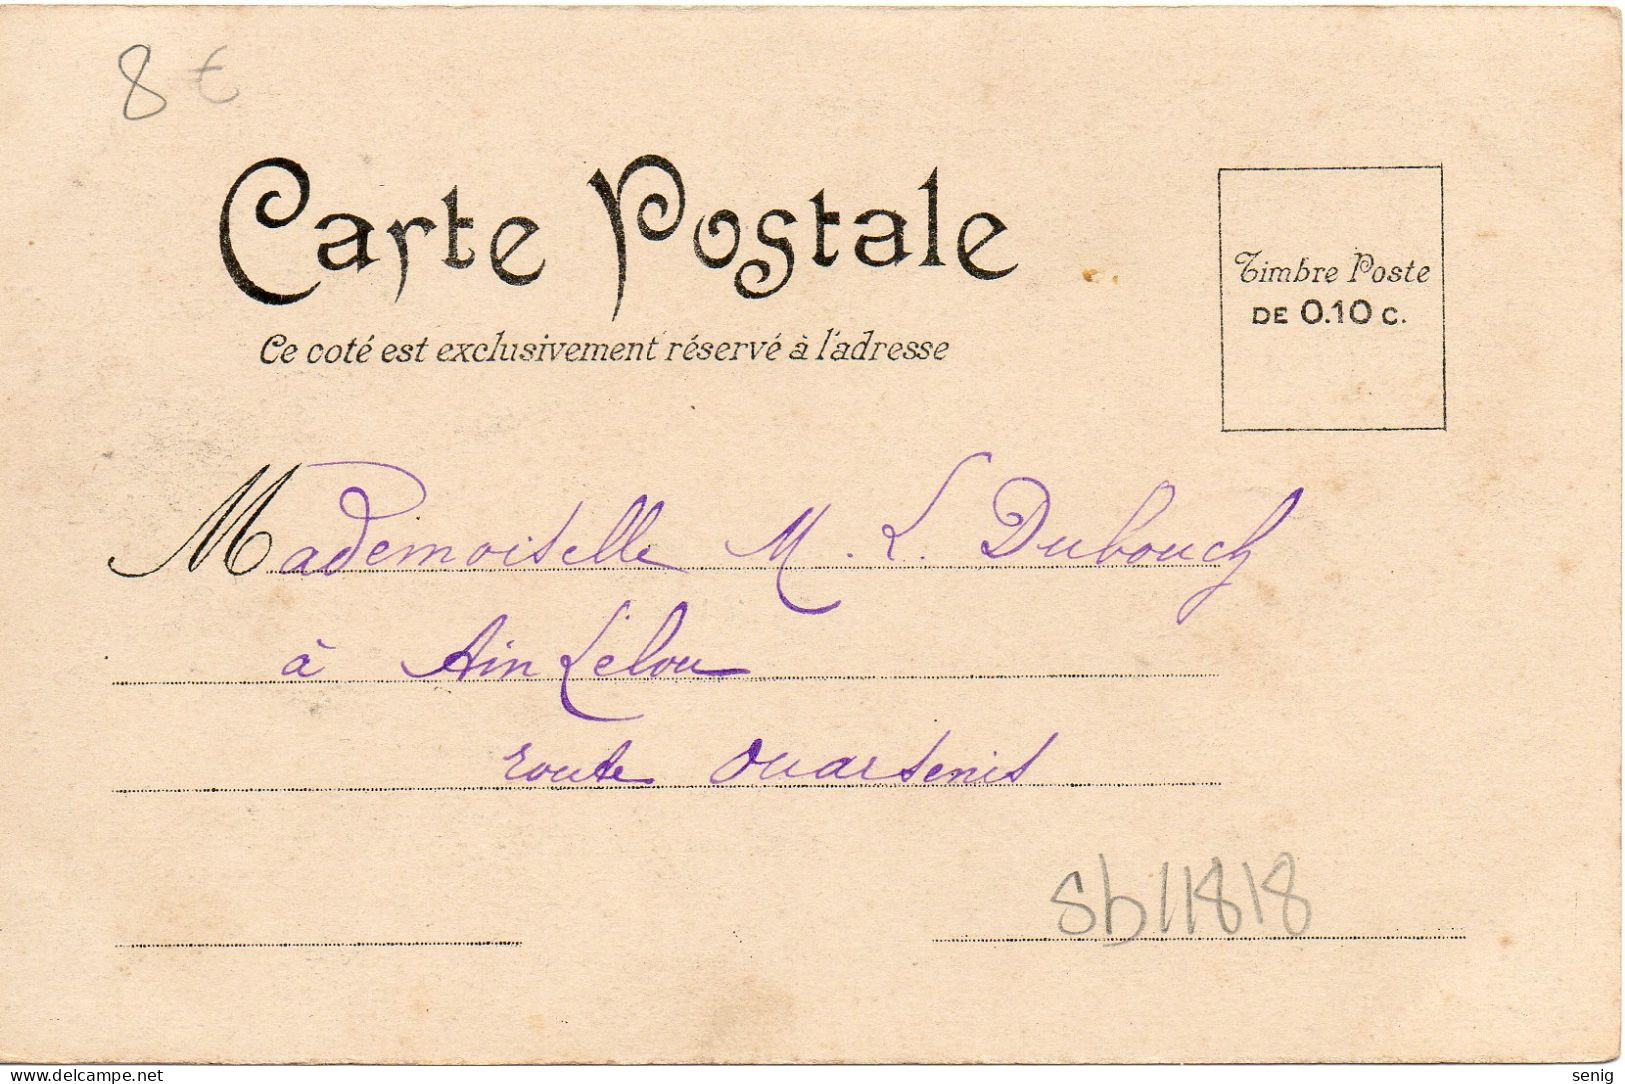 8 €
Carte Postale
Ce coté est exclusivement réservé à l'adresse
Timbre Poste
DE 0.10 c.
Mademoiselle M. L. Dubouch
à Ain Lelou
route Ouarsenis
Sb11818
delcampe.net
senig